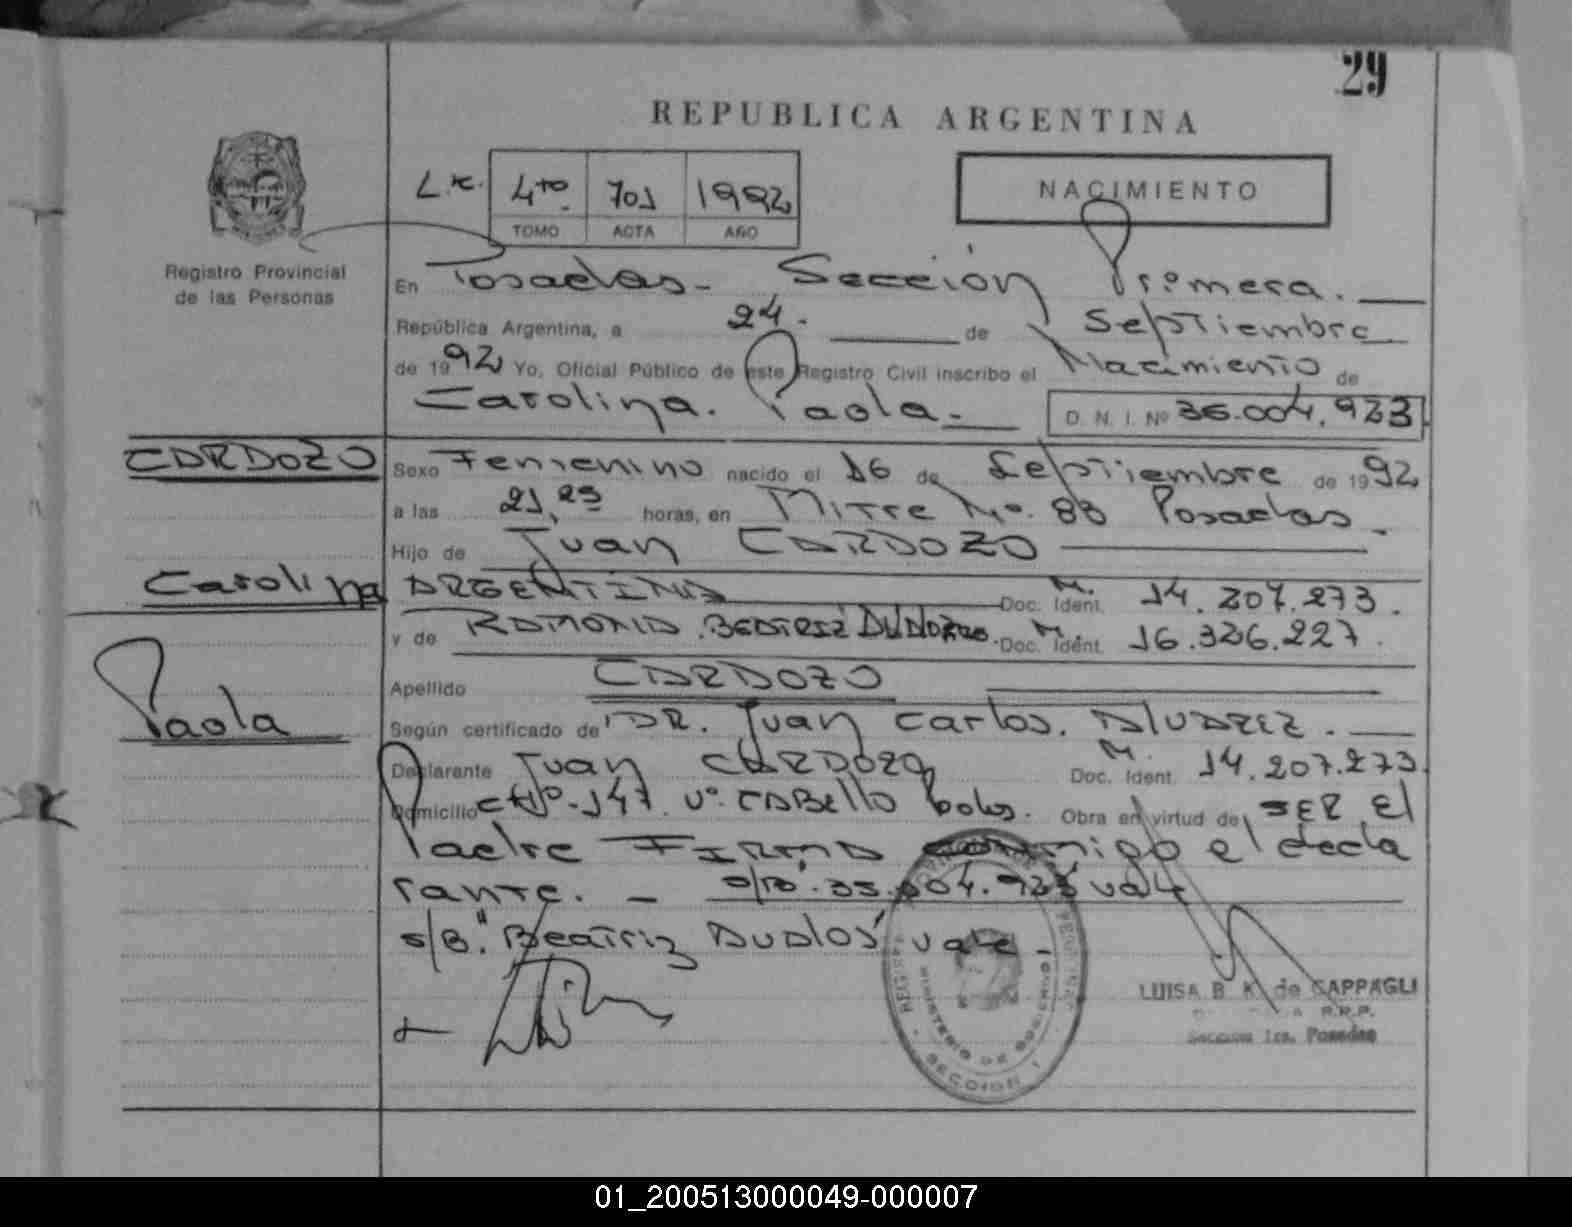 29
REPUBLICA ARGENTINA
4to 701 1992
TOMO ACTA AÑO
NACIMIENTO
Registro Provincial
de las Personas
En Posadas - Sección Primera.
República Argentina, a 24. de Septiembre
de 1992 Yo, Oficial Público de este Registro Civil inscribo el Nacimiento de
Carolina. Paola - D. N. I. Nº
CARDOZO
Sexo Femenino nacido el 16 de Septiembre de 1992
a las 21,23 horas, en Mitre No. 88 Posadas -
Hijo de Juan CARDOZO
Carolina
ARGENTINA M. Doc. Ident. 14.207.273.
y de RAMONA. M. Doc. Ident. 16.326.227.
Apellido CARDOZO
Paola
Según certificado de DR. Juan Carlos. ALVAREZ.
Declarante Juan CARDOZO M. Doc. Ident. 14.207.273
Domicilio 147 Vº. CABELLO Pdas. Obra en virtud de SER El
Padre FIRMA conmigo el decla
rante. - vale
s/B." Beatriz vale -
MINISTERIO DE GOBIERNO
SECCION 1
LUISA B. K. de CAPPAGLI
R.P.P.
Seccion 1ra. Posadas
01_200513000049-000007